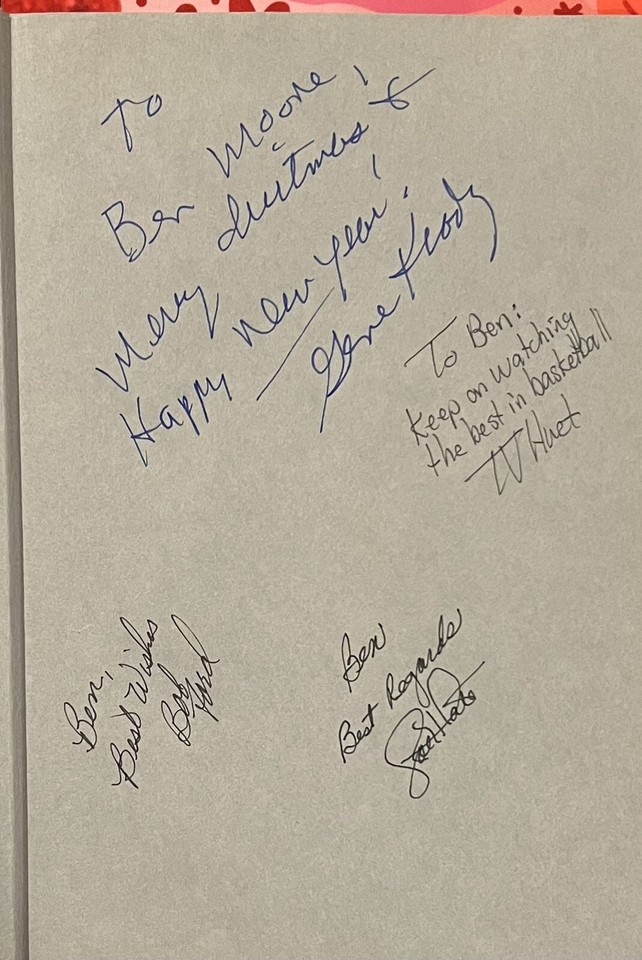 To
Ben Moore,
Merry Christmas &
Happy New Year!
Gene Keady
To Ben:
Keep on watching
the best in basketball
Ben,
Best Wishes
Bob
Ford
Ben
Best Regards